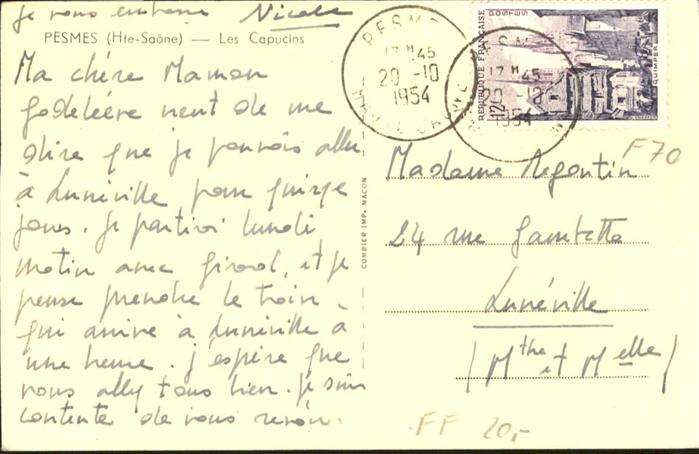 je vous embrasse Nicole
PESMES (Hte-Saône) — Les Capucins
Ma chère Maman
vient de me
dire que je pouvais aller
à Lunéville pour quinze
jours. Je partirai lundi
matin avec Girard, et je
pense prendre le train
qui arrive à Lunéville à
une heure. J'espère que
vous allez tous bien. Je suis
contente de vous revoir.
COMBIER IMP. MACON
PESMES
17 H 45
20 -10
1954
HAUTE SAONE
17 H 45
1954
REPUBLIQUE FRANÇAISE
POSTES
QUIMPER
12F
F70
Madame Argentin
24 rue Gambetta
Lunéville
(Mthe et Melle)
FF 20,-